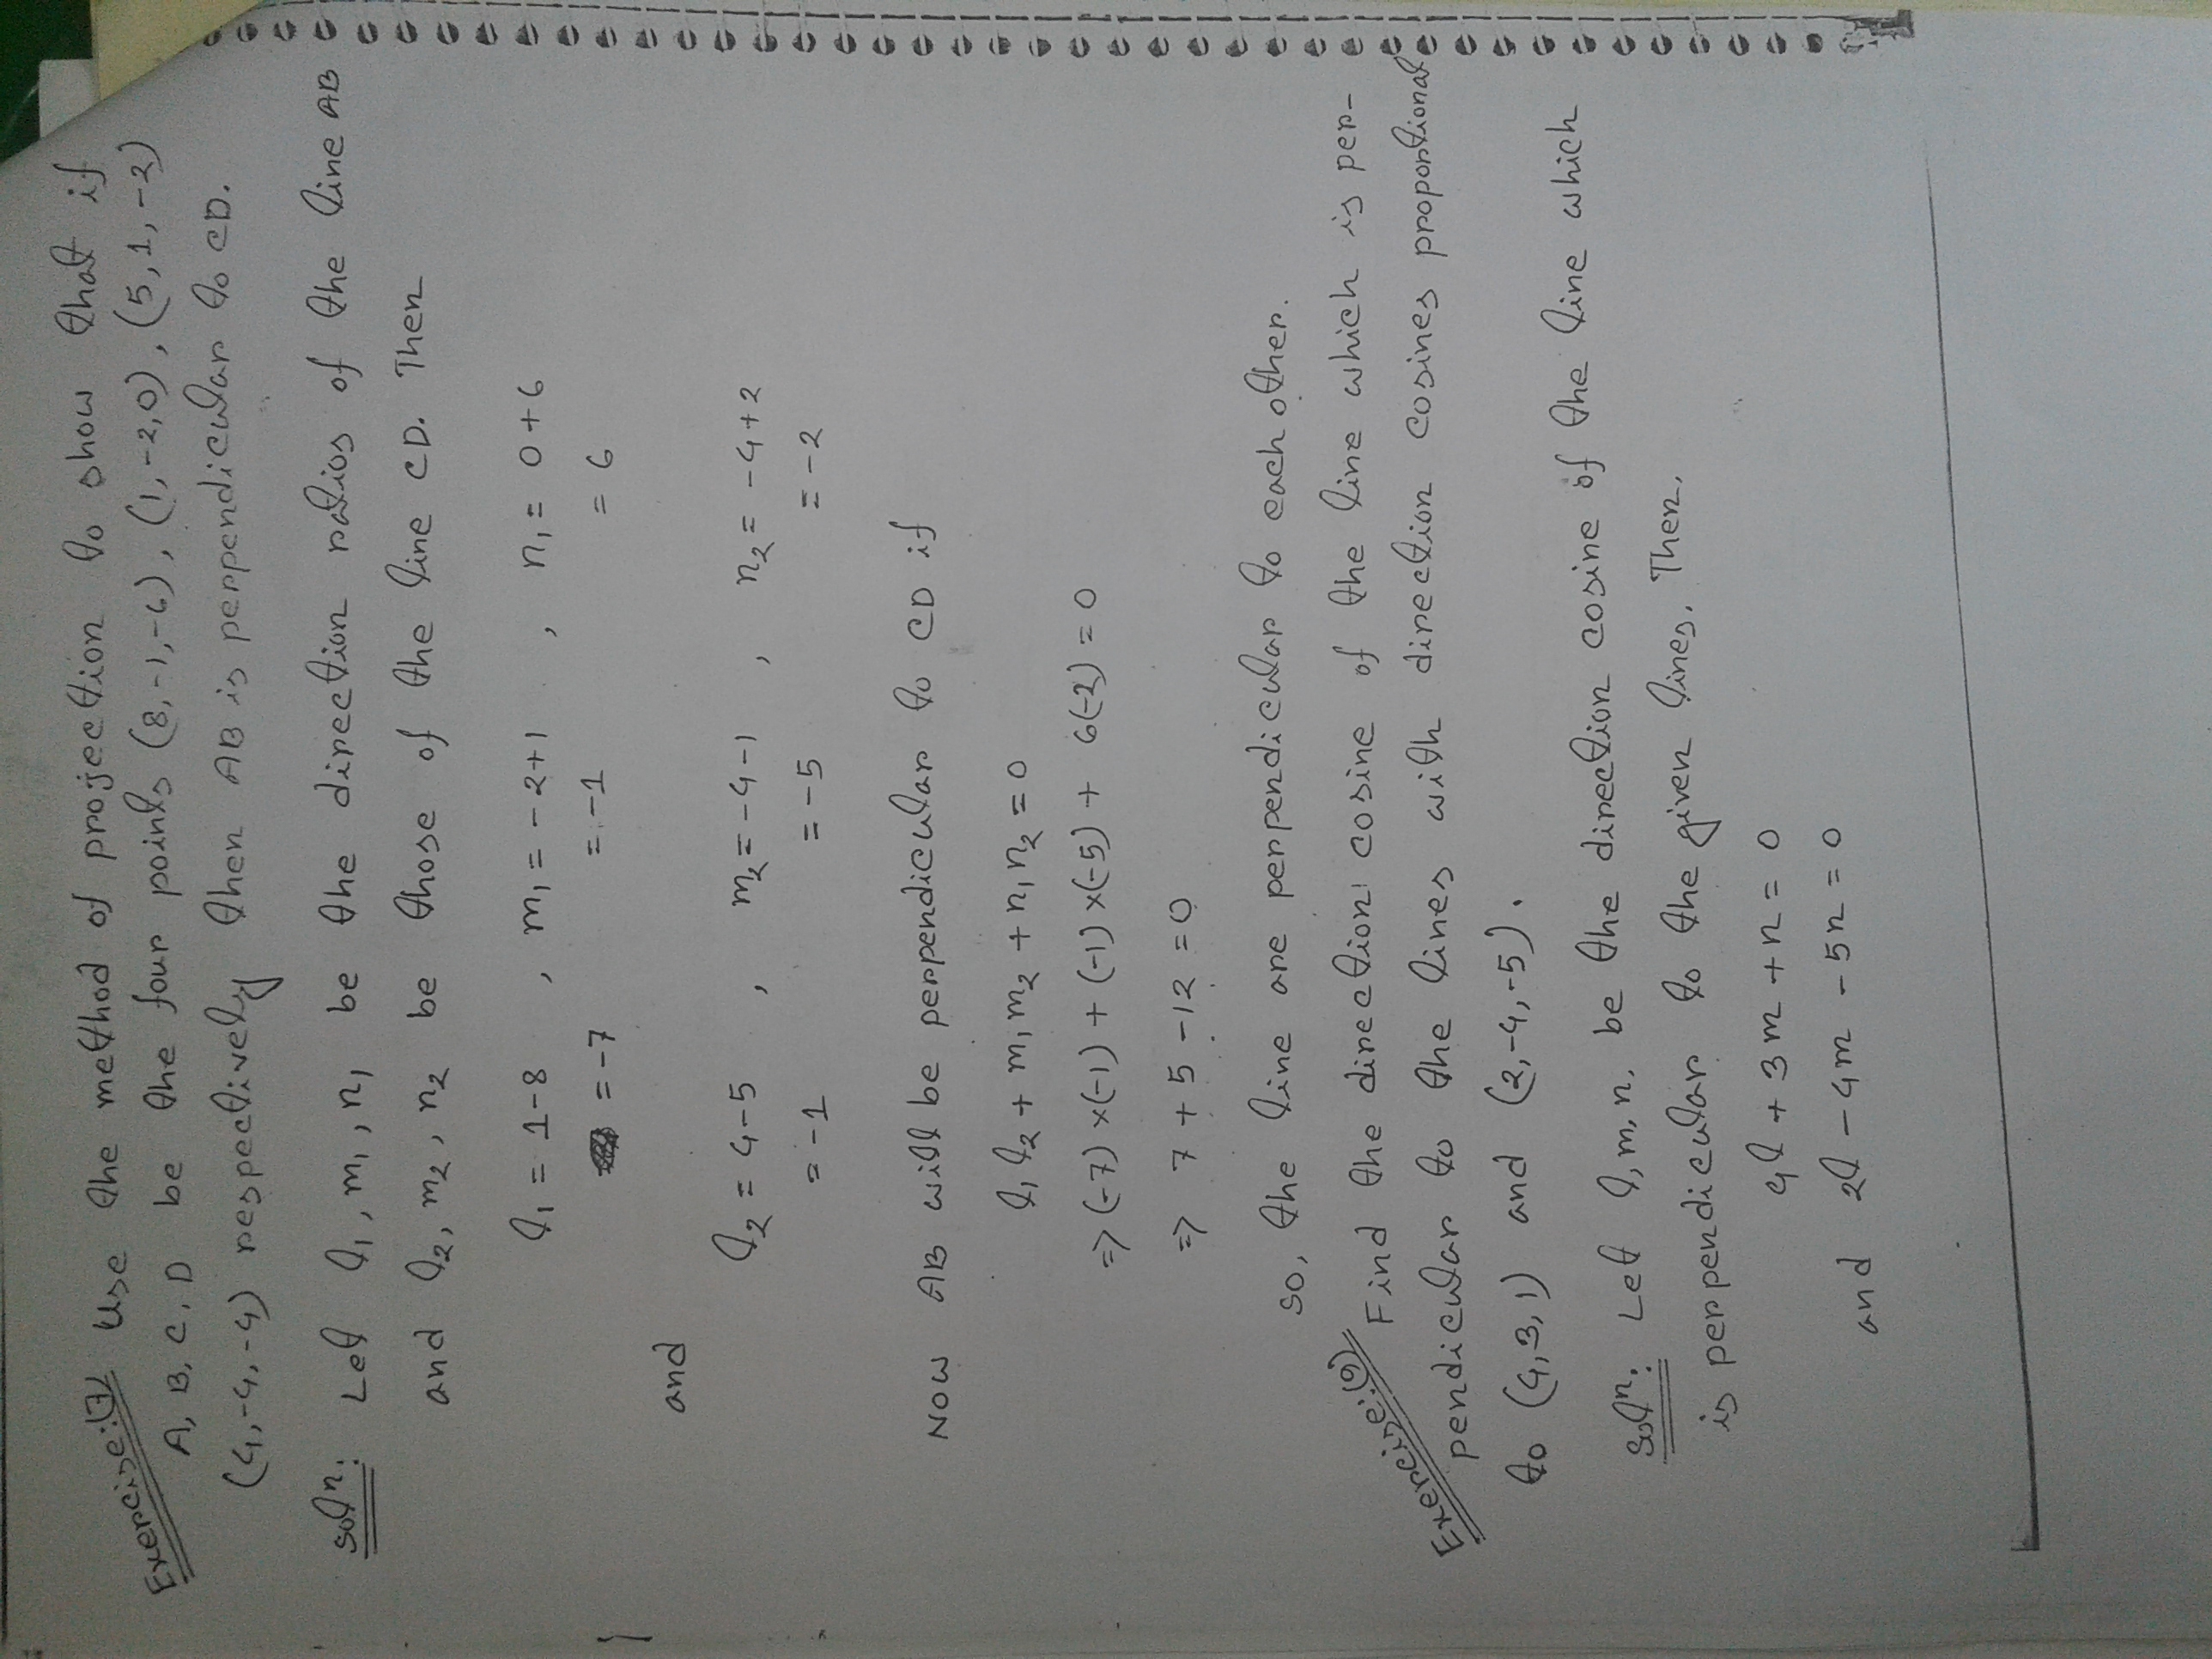 Exercise:(7) Use the method of projection to show that if
A, B, C, D be the four points (8,-1,-6), (1,-2,0), (5,1,-2)
(4,-4,-4) respectively then AB is perpendicular to CD.
Solⁿ: Let l₁, m₁, n₁ be the direction ratios of the line AB
and l₂, m₂, n₂ be those of the line CD. Then
l₁ = 1-8 , m₁ = -2+1 , n₁ = 0+6
= -7 = -1 = 6
and
l₂ = 4-5 , m₂ = -4-1 , n₂ = -4+2
= -1 = -5 = -2
Now AB will be perpendicular to CD if
l₁l₂ + m₁m₂ + n₁n₂ = 0
=> (-7)×(-1) + (-1)×(-5) + 6(-2) = 0
=> 7+5-12 = 0
So, the line are perpendicular to each other.
Exercise:(9) Find the direction cosine of the line which is per-
pendicular to the lines with direction cosines proportional
to (4,3,1) and (2,-4,-5).
Solⁿ: Let l, m, n, be the direction cosine of the line which
is perpendicular to the given lines. Then,
4l + 3m + n = 0
and 2l - 4m - 5n = 0